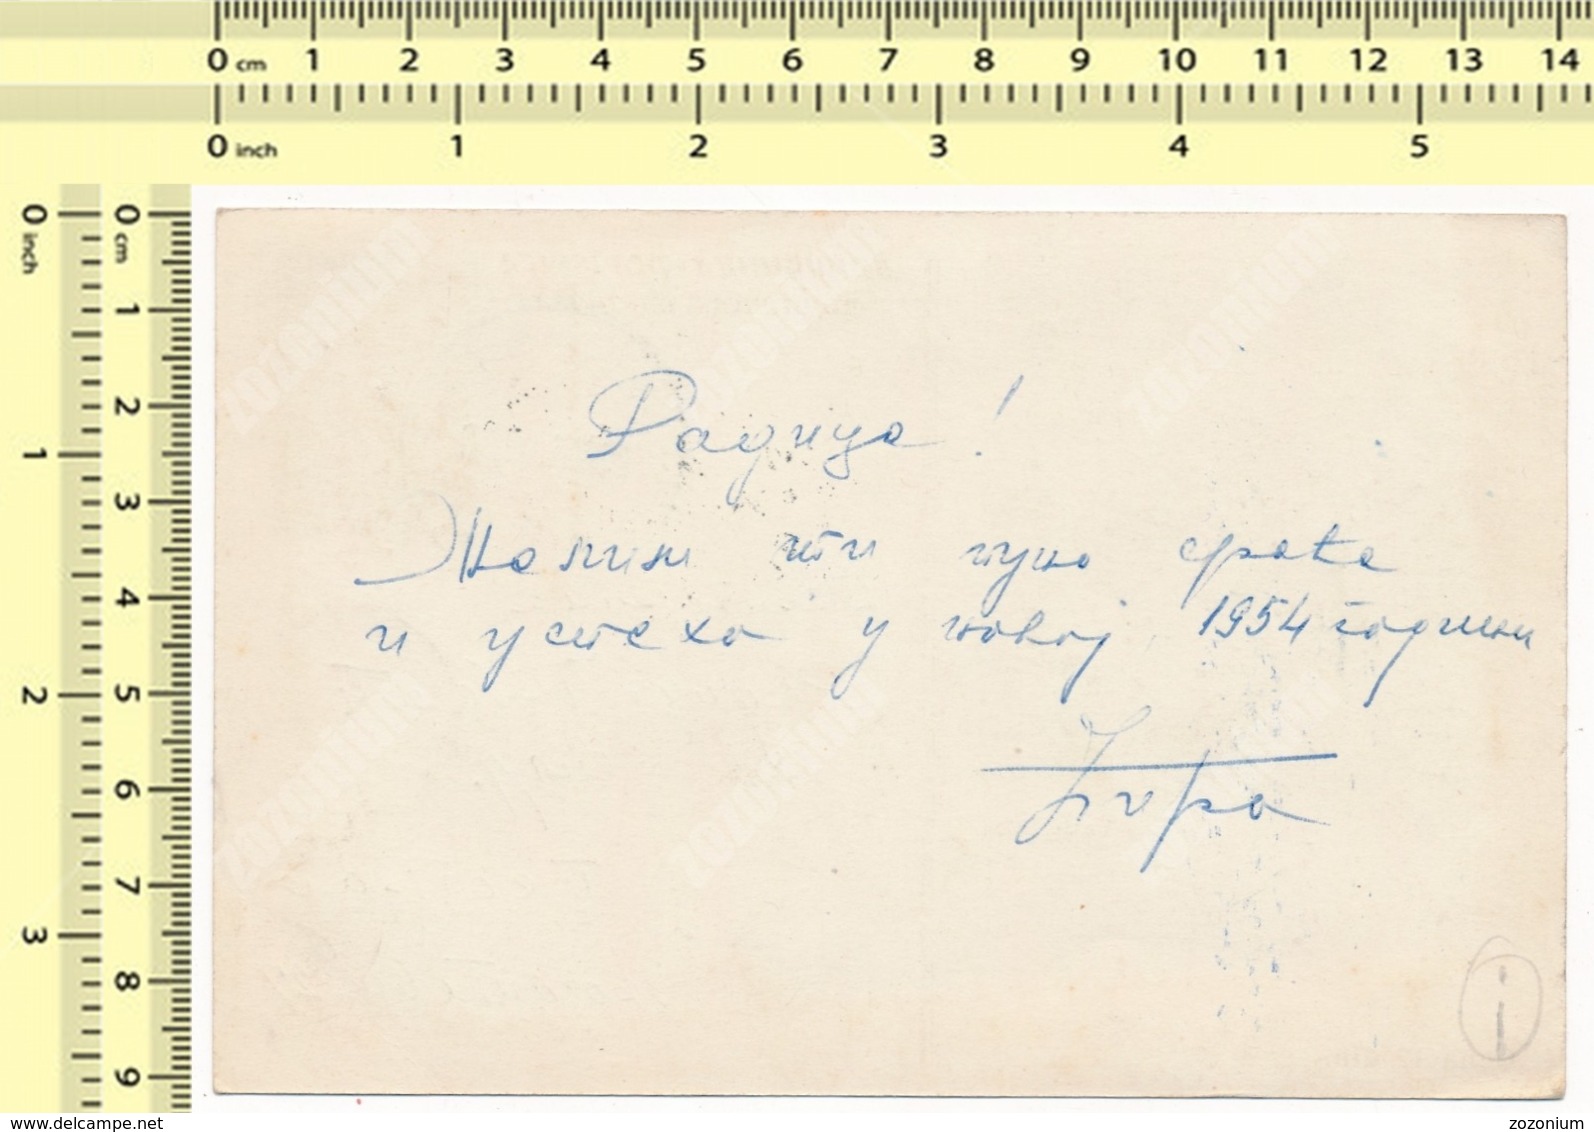 0 cm 1 2 3 4 5 6 7 8 9 10 11 12 13 14
0 inch 1 2 3 4 5
0 inch 1 2 3
0 cm 1 2 3 4 5 6 7 8 9
Радице!
Желим ти пуно среће
и успеха у новој 1954 години
www.delcampe.net
zozonium